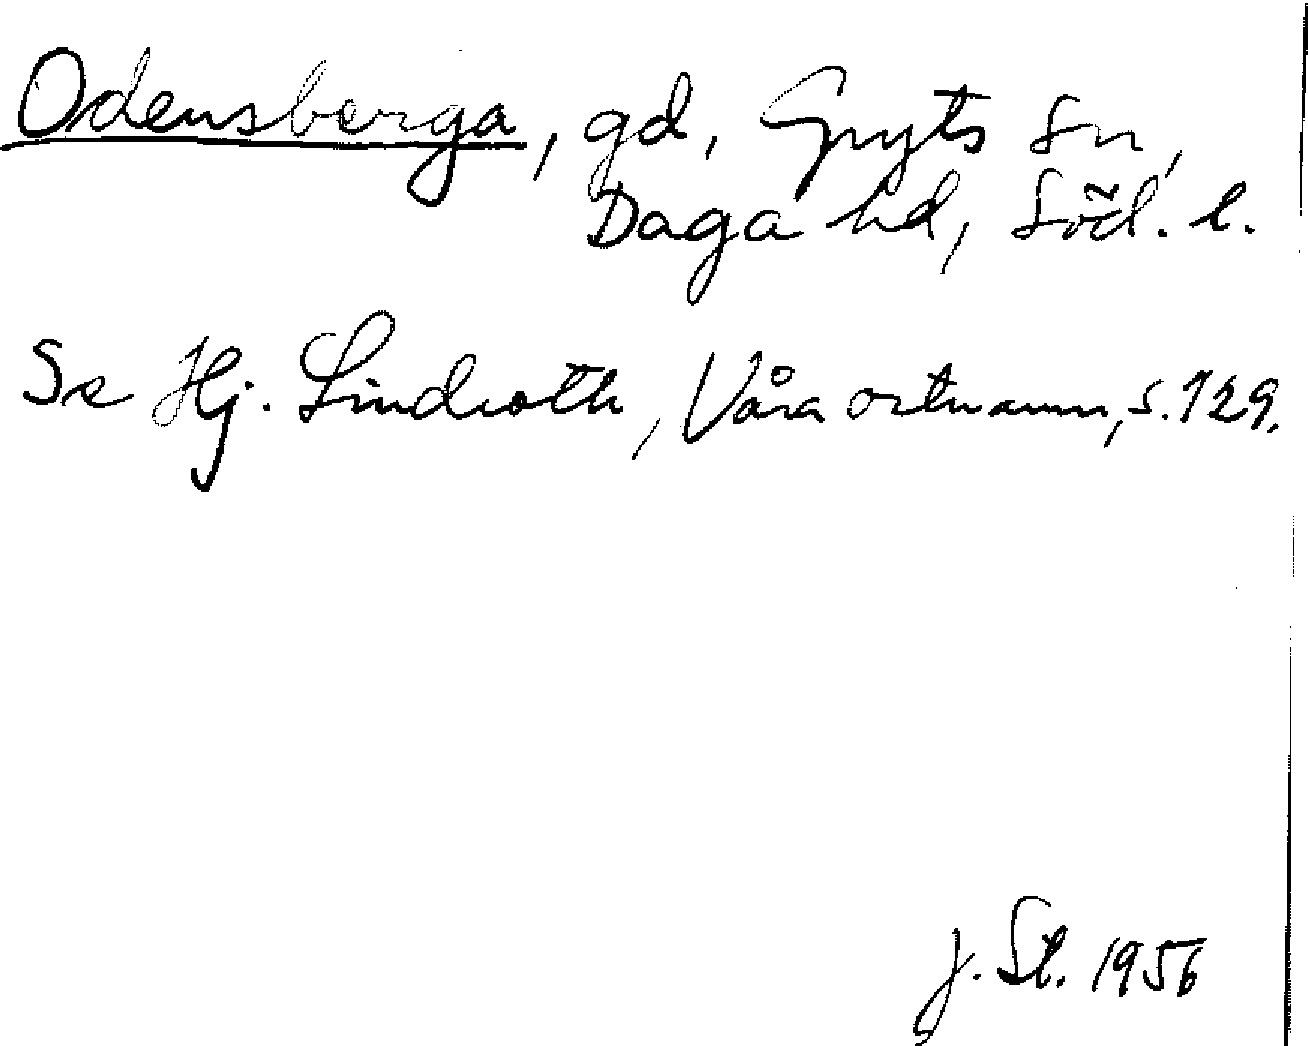 Odensberga, gd, Gryts sn,
Daga hd, Söd. l.
Se Hj. Lindroth, Våra ortnamn, s. 129.
J. St. 1956